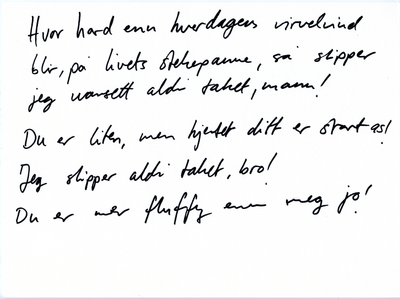 Hvor hard enn hverdagens virvelvind
blir, på livets stekepanne, så slipper
jeg uansett aldri taket, mann!
Du er liten, men hjertet ditt er stort as!
Jeg slipper aldri taket, bro!
Du er mer fluffy enn meg jo!